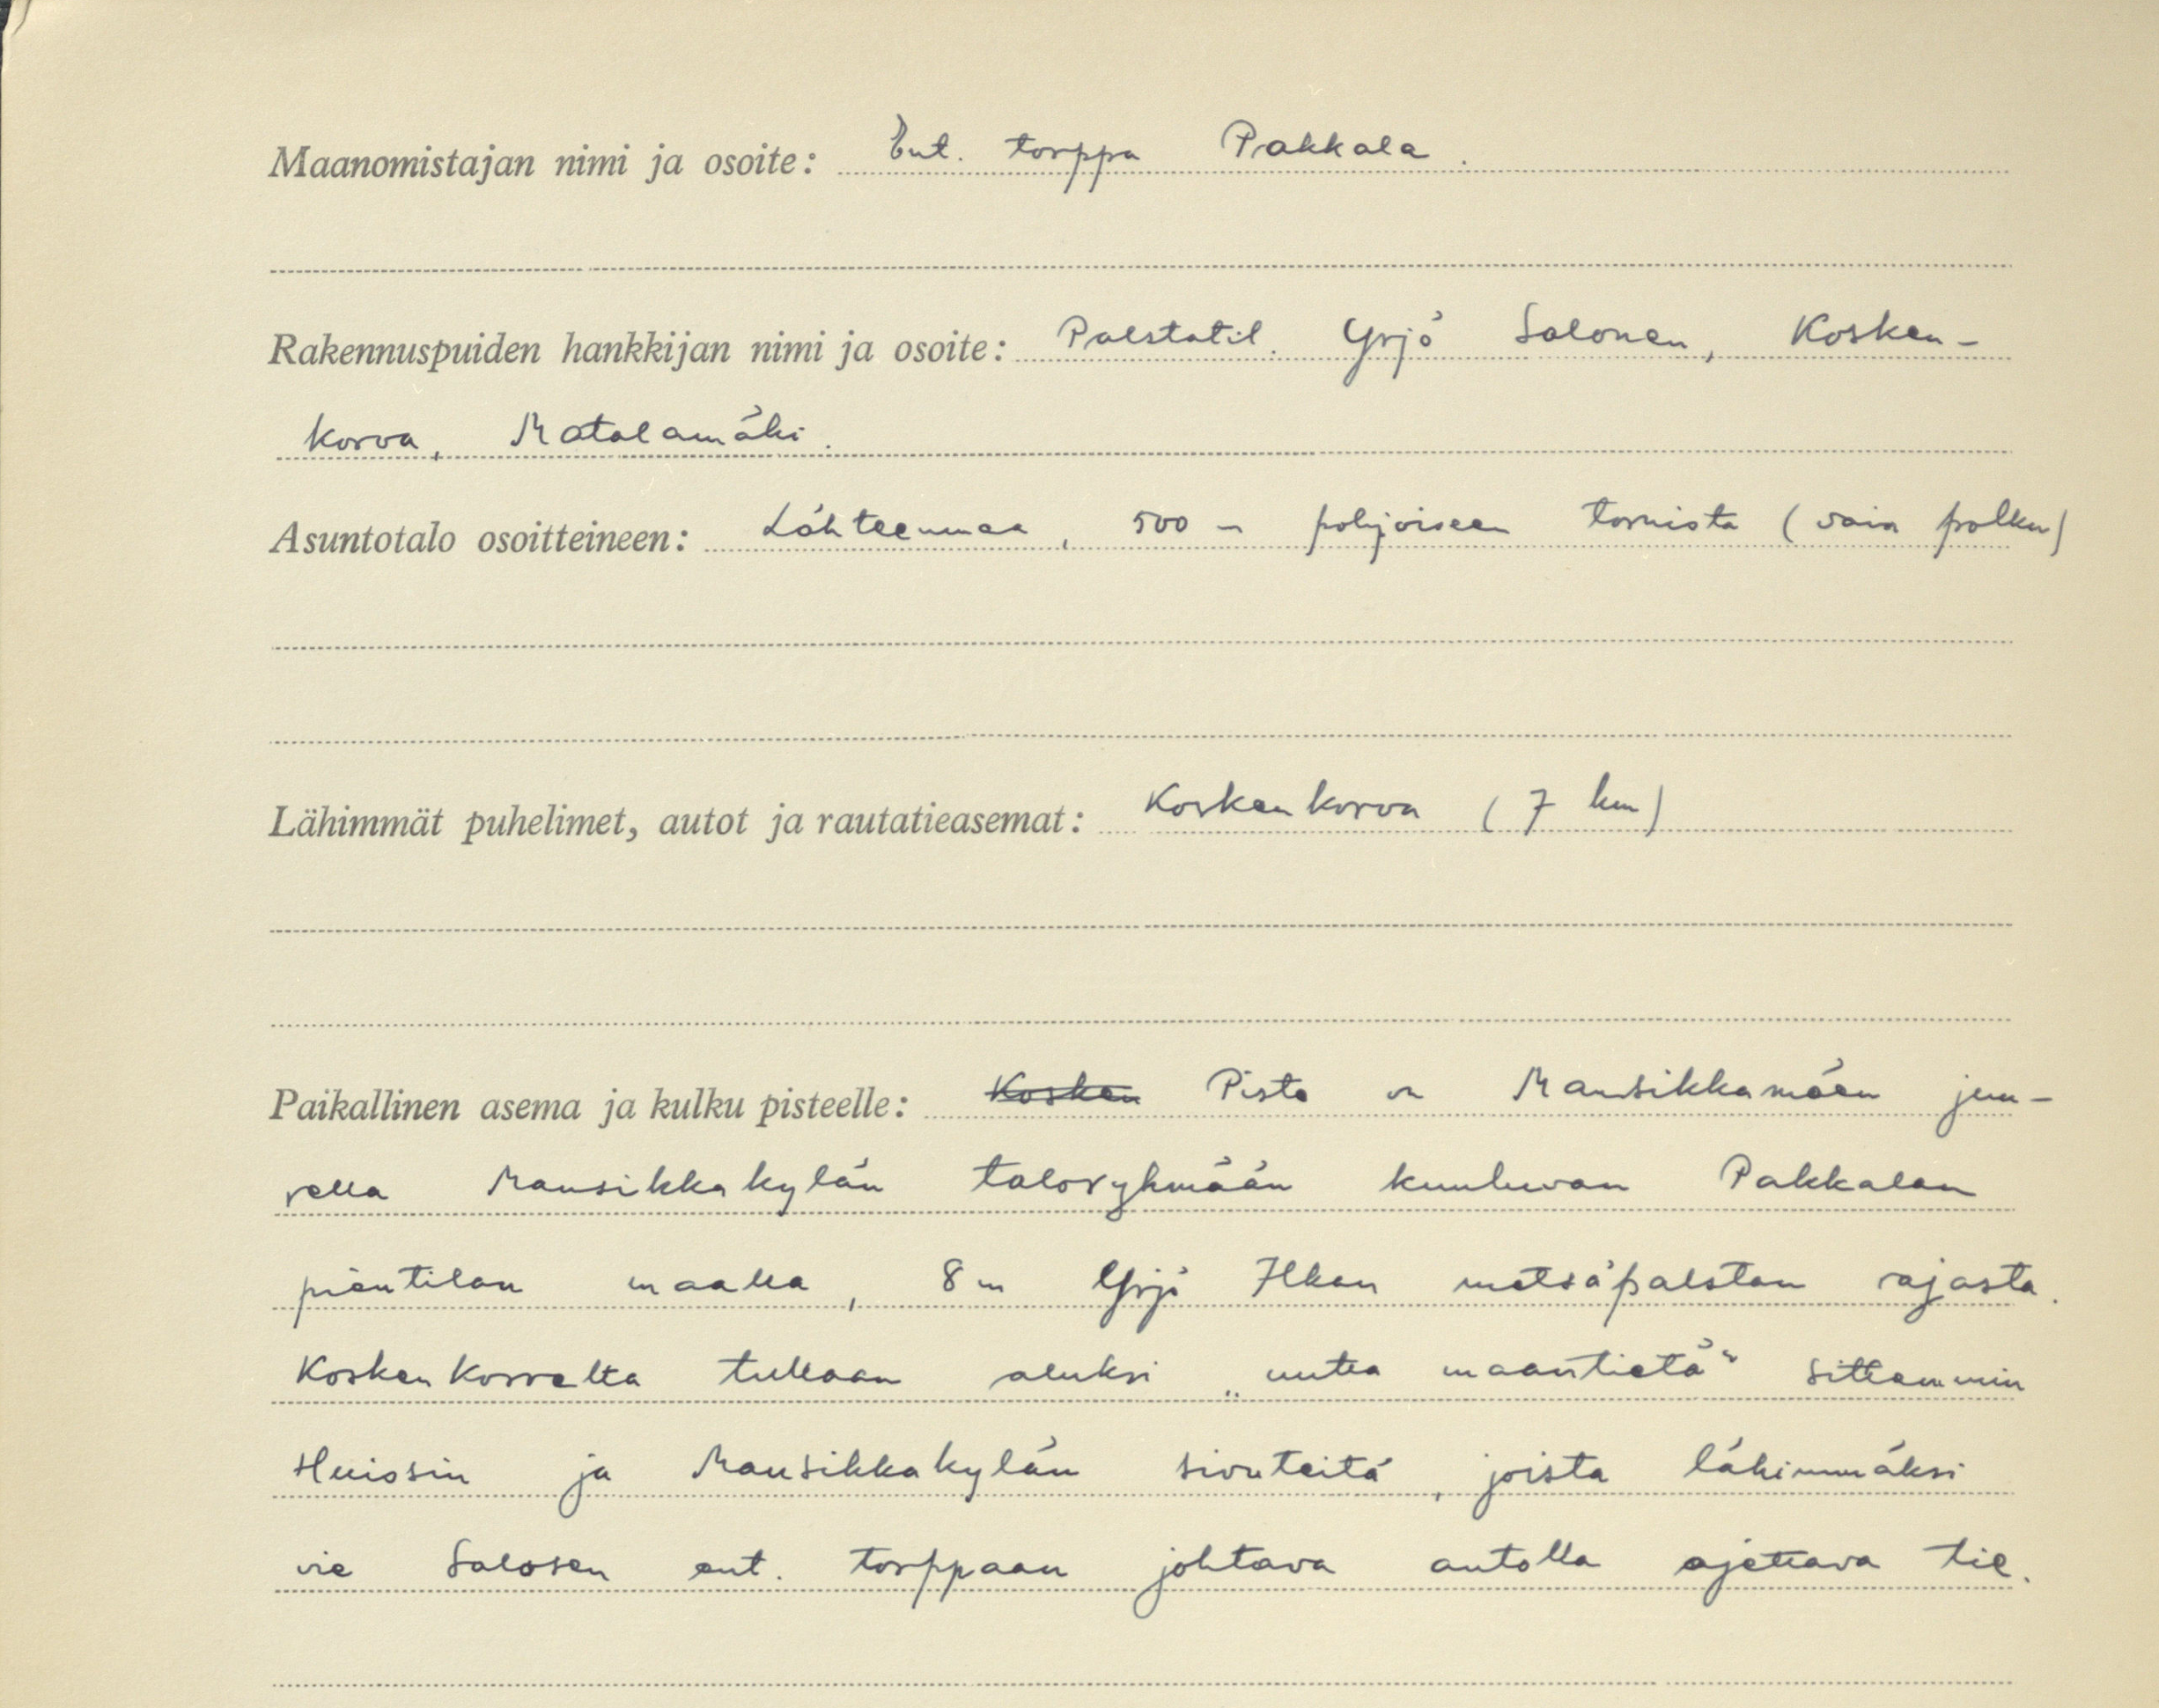 Maanomistajan nimi ja osoite: Ent. torppa Pakkala.
Rakennuspuiden hankkijan nimi ja osoite: Palstatil. Yrjö Salonen, Kosken-
korva, Matalamäki.
Asuntotalo osoitteineen: Lähteenmaa, 500 m pohjoiseen tornista (vain polku)
Lähimmät puhelimet, autot ja rautatieasemat: Koskenkorva (7 km)
Paikallinen asema ja kulku pisteelle: Kosken Piste on Mansikkamäen juu-
rella Mansikkakylän taloryhmään kuuluvan Pakkalan
pientilan maalla, 8 m Yrjö Ilkan metsäpalstan rajasta.
Koskenkorvalta tullaan aluksi „uutta maantietä“ sittemmin
Huissin ja Mansikkakylän sivuteitä, joista lähimmäksi
vie Salosen ent. torppaan johtava autolla ajettava tie.